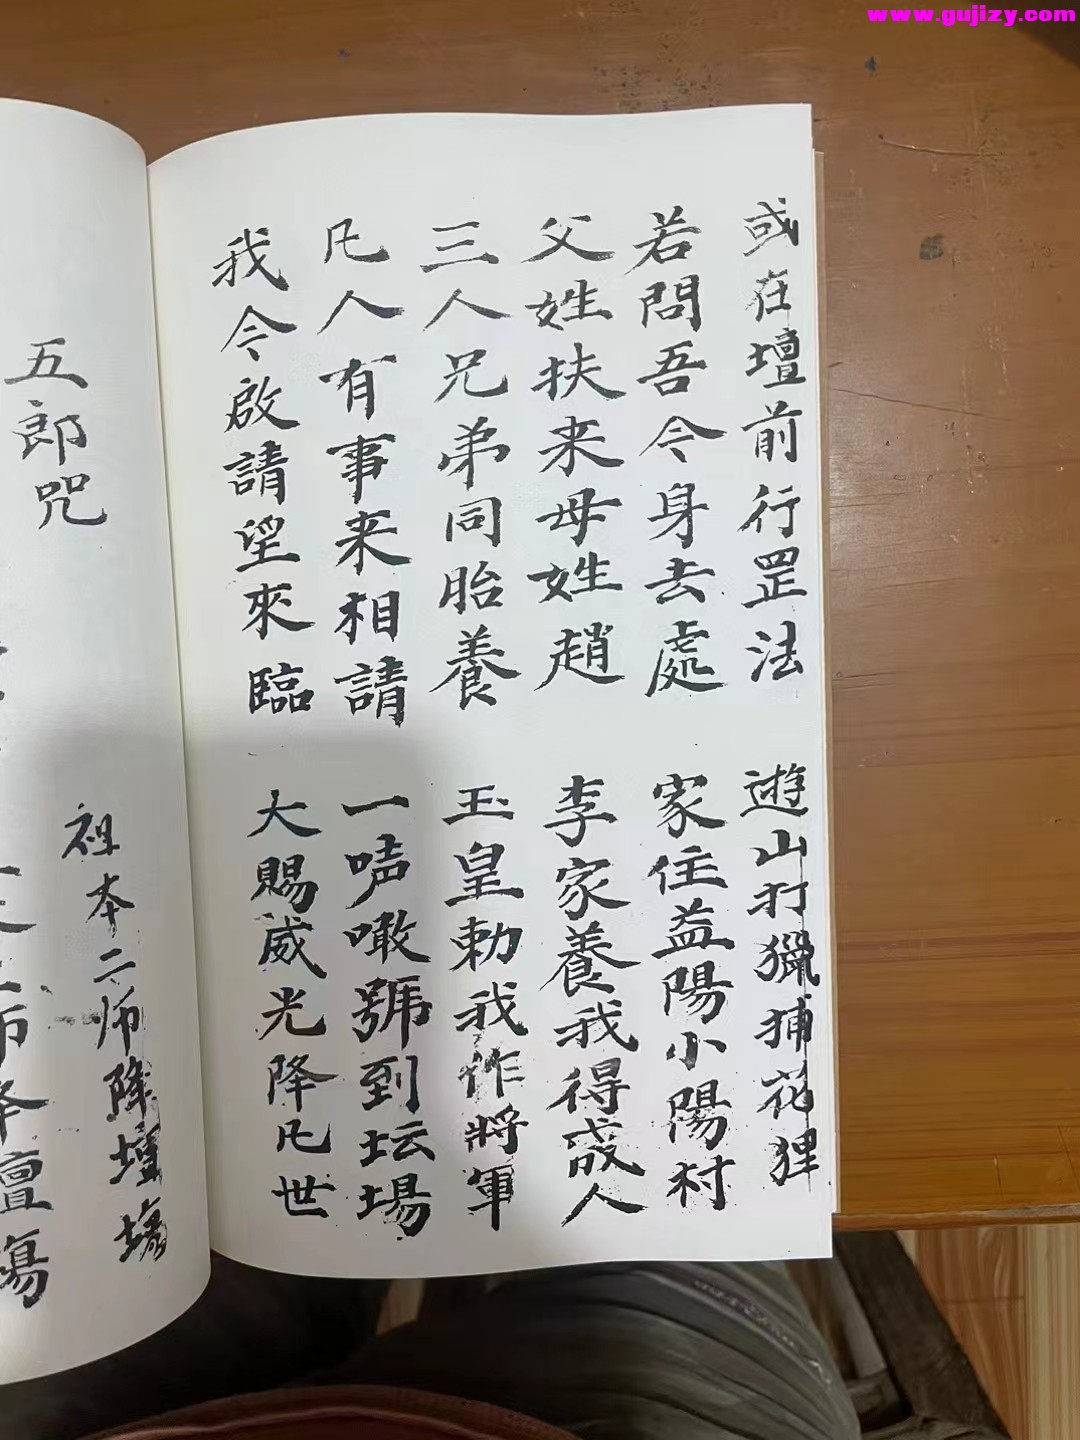 www.gujizy.com
或在壇前行罡法 遊山打獵捕花狸
若問吾今身去處 家住益陽小陽村
父姓扶来母姓趙 李家養我得成人
三人兄弟同胎養 玉皇勅我作將軍
凡人有事来相請 一唭噉號到坛場
我今啟請望來臨 大賜威光降凡世
祖本二师降壇場
五郎咒
师降壇場